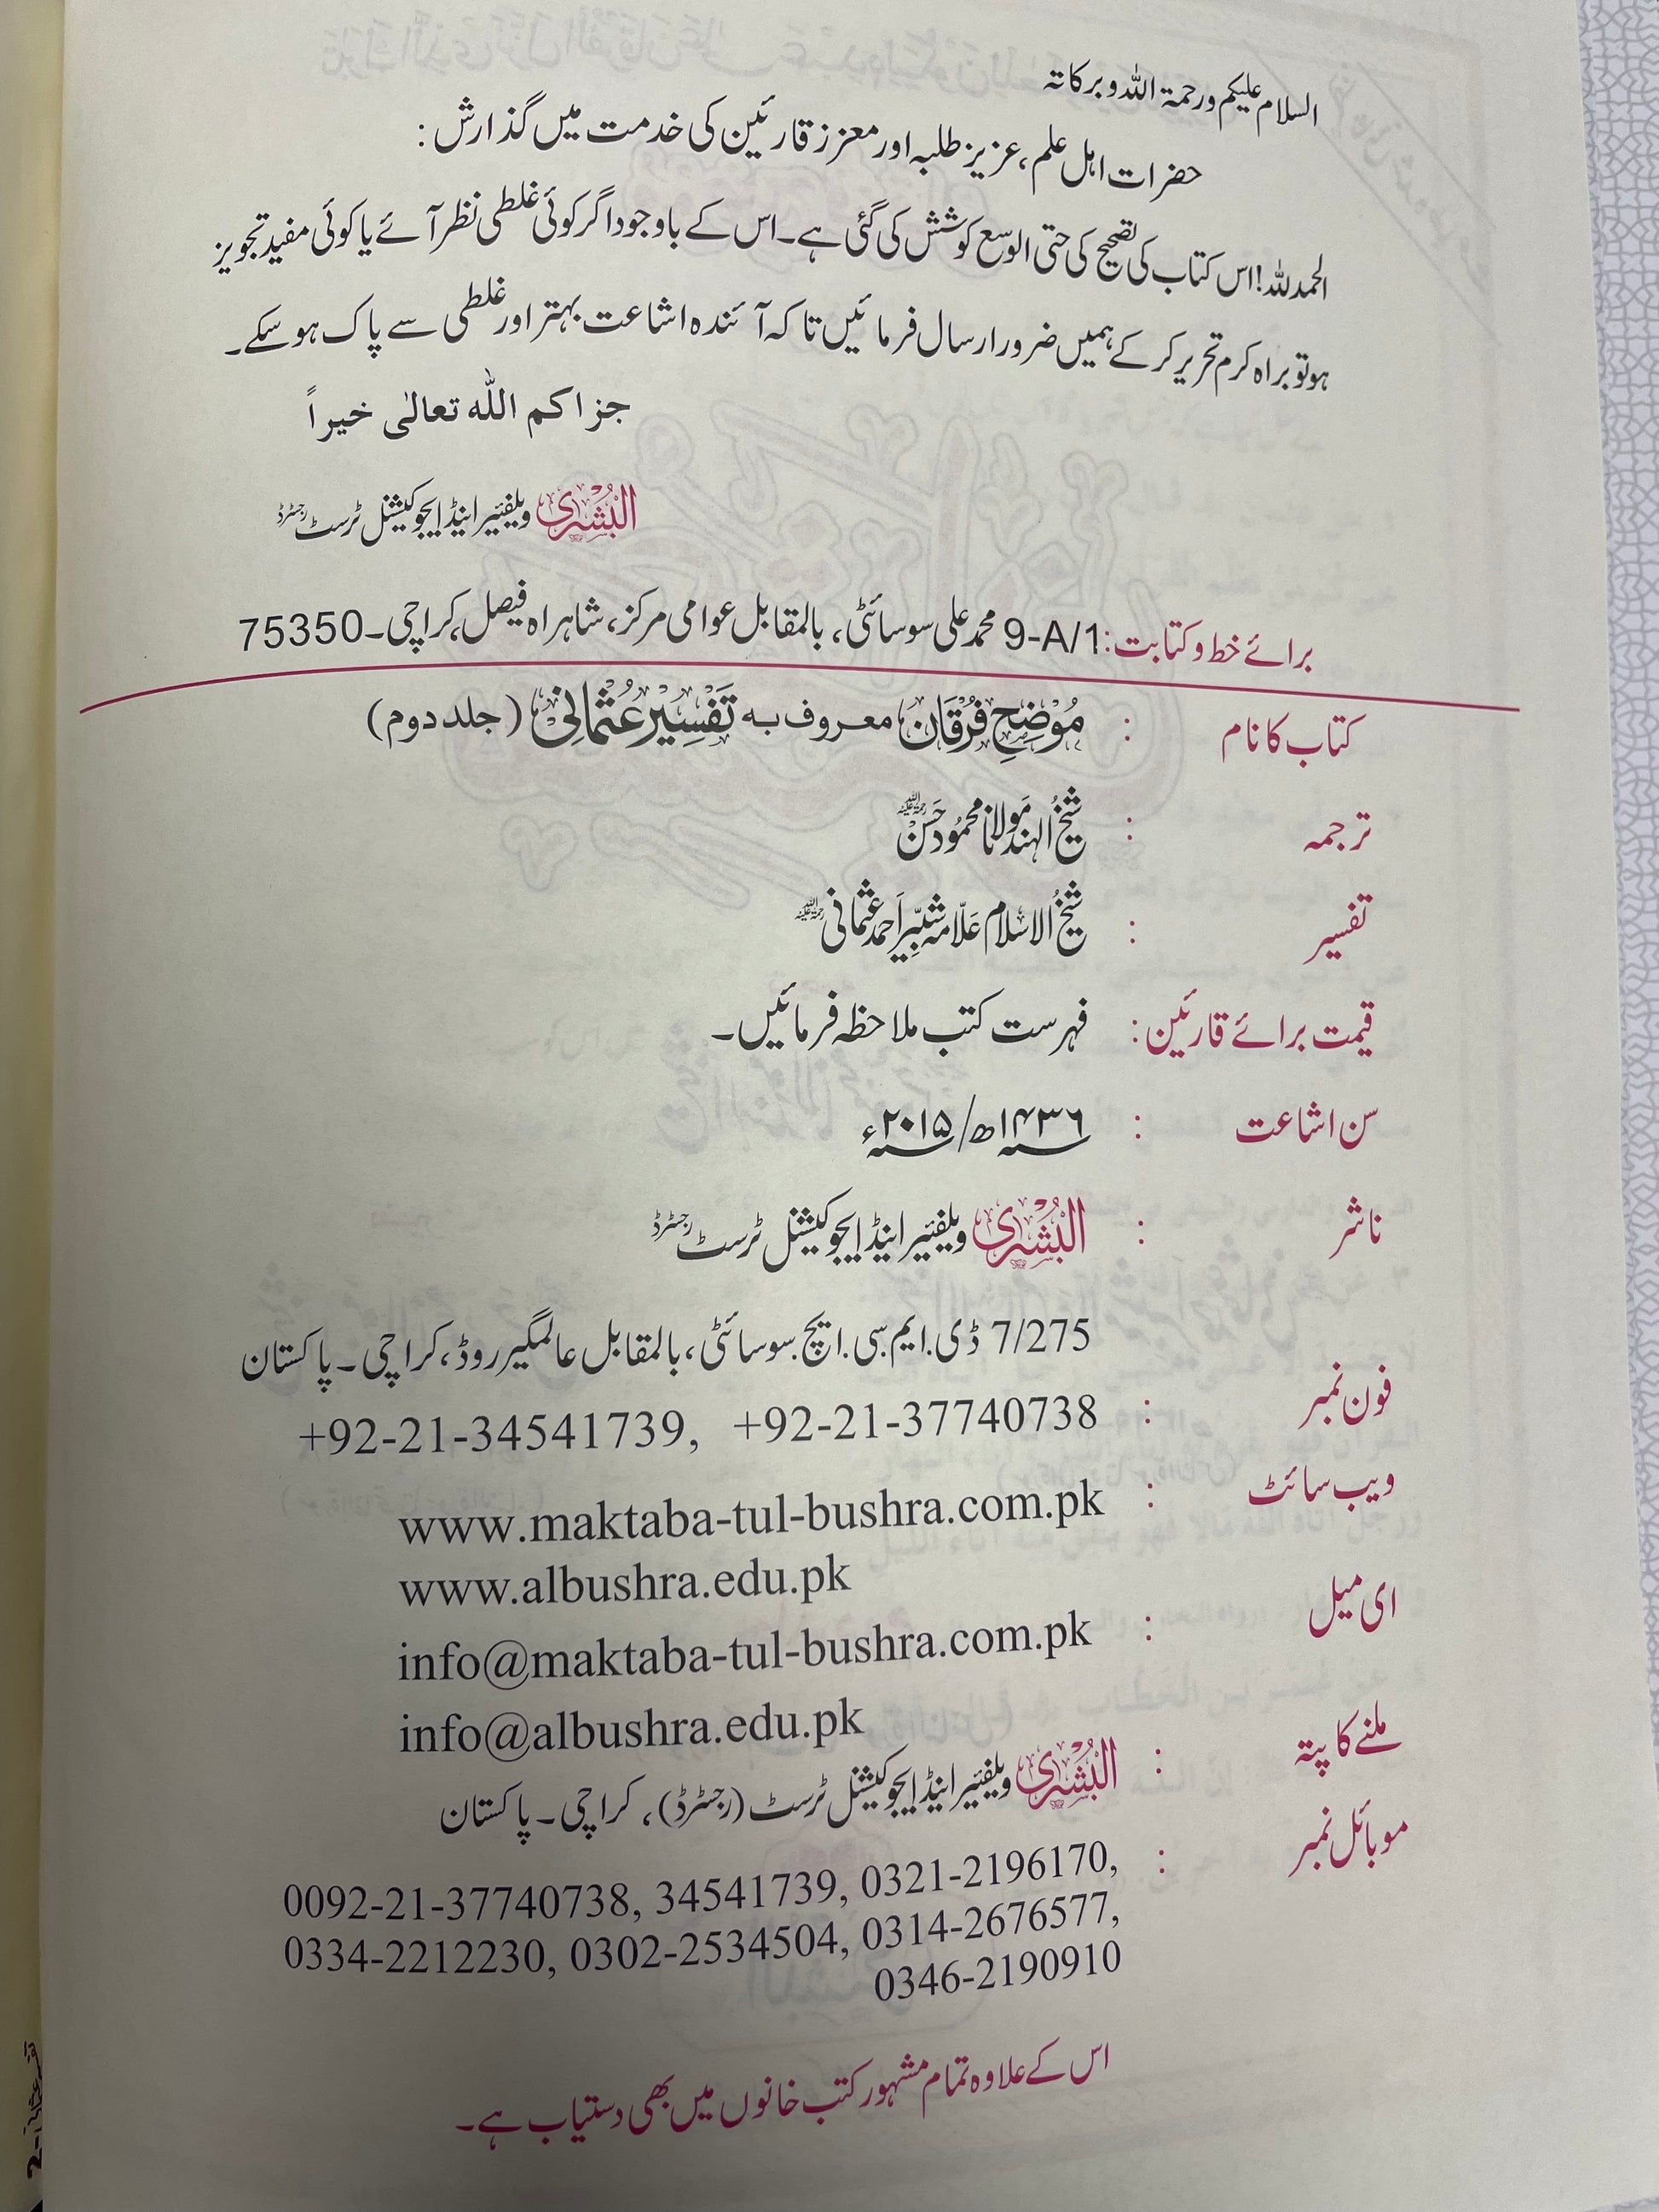 السلام علیکم ورحمۃ اللہ وبرکاتہ
حضرات اہل علم، عزیز طلبہ اور معزز قارئین کی خدمت میں گذارش :
الحمدللہ! اس کتاب کی تصحیح کی حتی الوسع کوشش کی گئی ہے۔ اس کے باوجود اگر کوئی غلطی نظر آئے یا کوئی مفید تجویز
ہو تو براہ کرم تحریر کر کے ہمیں ضرور ارسال فرمائیں تاکہ آئندہ اشاعت بہتر اور غلطی سے پاک ہو سکے۔
جزاکم اللہ تعالٰی خیراً
البُشریٰ ویلفیئر اینڈ ایجوکیشنل ٹرسٹ رجسٹرڈ
برائے خط و کتابت: 9-A/1 محمد علی سوسائٹی، بالمقابل عوامی مرکز، شاہراہ فیصل، کراچی۔ 75350
کتاب کا نام : مُوْضِحِ فُرْقَان معروف بہ تَفْسِیْرِ عُثْمَانِیْ (جلد دوم)
ترجمہ : شیخ الہند مولانا محمود حسن رحمۃ اللہ علیہ
تفسیر : شیخ الاسلام علامہ شبیر احمد عثمانی رحمۃ اللہ علیہ
قیمت برائے قارئین : فہرست کتب ملاحظہ فرمائیں۔
سن اشاعت : ۱۴۳۶ھ/۲۰۱۵ء
ناشر : البُشریٰ ویلفیئر اینڈ ایجوکیشنل ٹرسٹ رجسٹرڈ
7/275 ڈی.ایم.سی.ایچ.سوسائٹی، بالمقابل عالمگیر روڈ، کراچی۔ پاکستان
فون نمبر : +92-21-34541739, +92-21-37740738
ویب سائٹ : www.maktaba-tul-bushra.com.pk
www.albushra.edu.pk
ای میل : info@maktaba-tul-bushra.com.pk
info@albushra.edu.pk
ملنے کا پتہ : البُشریٰ ویلفیئر اینڈ ایجوکیشنل ٹرسٹ (رجسٹرڈ)، کراچی۔ پاکستان
موبائل نمبر : 0092-21-37740738, 34541739, 0321-2196170,
0334-2212230, 0302-2534504, 0314-2676577,
0346-2190910
اس کے علاوہ تمام مشہور کتب خانوں میں بھی دستیاب ہے۔